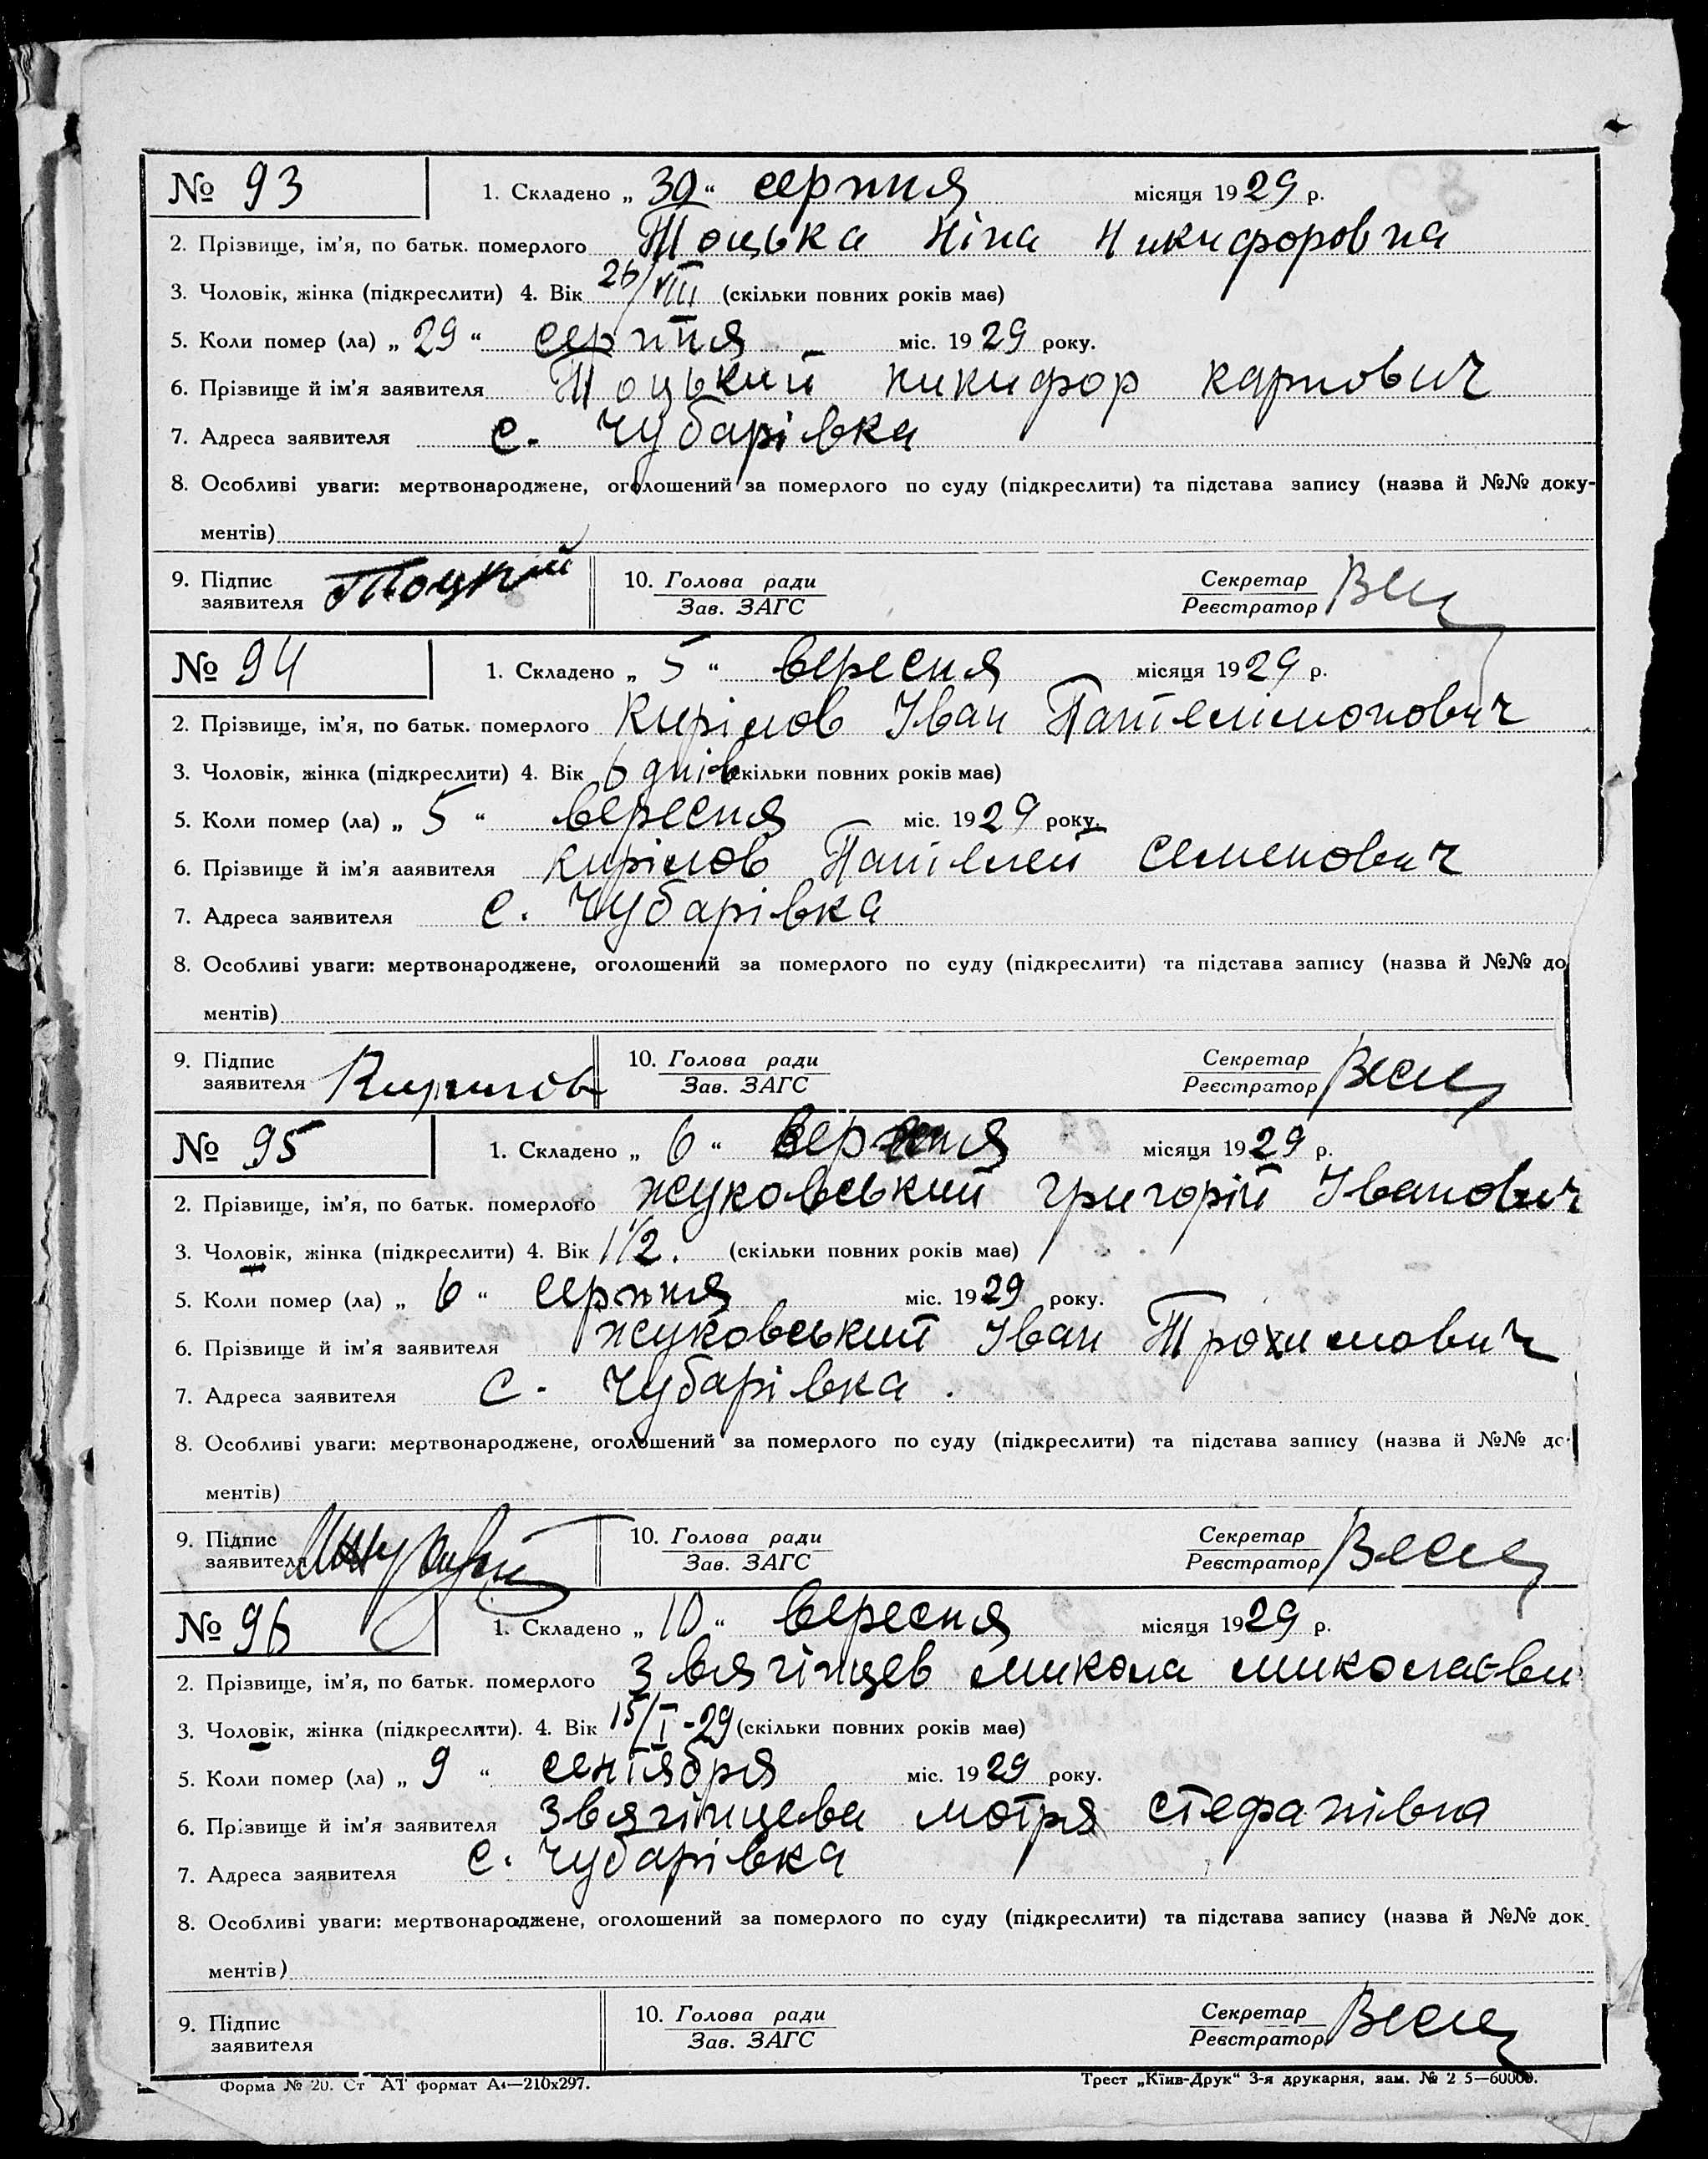 № 93 1. Складено „ 30 “ серпня місяця 1929 р.
2. Прізвище, ім'я, по батьк. померлого Тоцька Ніна Никифоровна
3. Чоловік, жінка (підкреслити) 4. Вік 26/VIII (скільки повних років має)
5. Коли помер (ла) „ 29 “ серпня міс. 1929 року.
6. Прізвище й ім'я заявителя Тоцький никифор карпович
7. Адреса заявителя с. Чубарівка
8. Особливі уваги: мертвонароджене, оголошений за померлого по суду (підкреслити) та підстава запису (назва й №№ доку-
ментів)
9. Підпис заявителя Тоцкий 10. Голова ради Зав. ЗАГС Секретар Реєстратор
№ 94 1. Складено „ 5 “ вересня місяця 1929 р.
2. Прізвище, ім'я, по батьк. померлого Кирілов Іван Пантелімонович
3. Чоловік, жінка (підкреслити) 4. Вік 6 днів (скільки повних років має)
5. Коли помер (ла) „ 5 “ вересня міс. 1929 року.
6. Прізвище й ім'я заявителя Кирілов Пантелей семенович
7. Адреса заявителя с. Чубарівка
8. Особливі уваги: мертвонароджене, оголошений за померлого по суду (підкреслити) та підстава запису (назва й №№ до
ментів)
9. Підпис заявителя Кирилов 10. Голова ради Зав. ЗАГС Секретар Реєстратор
№ 95 1. Складено „ 6 “ вересня місяця 1929 р.
2. Прізвище, ім'я, по батьк. померлого жуковський григорій Іванович
3. Чоловік, жінка (підкреслити) 4. Вік 1 1/2. (скільки повних років має)
5. Коли помер (ла) „ 6 “ серпня міс. 1929 року.
6. Прізвище й ім'я заявителя жуковський Іван Трохимович
7. Адреса заявителя с. Чубарівка.
8. Особливі уваги: мертвонароджене, оголошений за померлого по суду (підкреслити) та підстава запису (назва й №№ до
ментів)
9. Підпис заявителя 10. Голова ради Зав. ЗАГС Секретар Реєстратор
№ 96 1. Складено „ 10 “ вересня місяця 1929 р.
2. Прізвище, ім'я, по батьк. померлого Звягінцев микола миколаєви
3. Чоловік, жінка (підкреслити). 4. Вік 15/I-29 (скільки повних років має)
5. Коли помер (ла) „ 9 “ сентября міс. 1929 року.
6. Прізвище й ім'я заявителя Звягінцева мотря стефанівна
7. Адреса заявителя с. Чубарівка
8. Особливі уваги: мертвонароджене, оголошений за померлого по суду (підкреслити) та підстава запису (назва й №№ док
ментів)
9. Підпис заявителя 10. Голова ради Зав. ЗАГС Секретар Реєстратор
Форма № 20. Ст АТ формат А4—210х297. Трест „Київ-Друк“ 3-я друкарня, зам. № 2 5—60000.